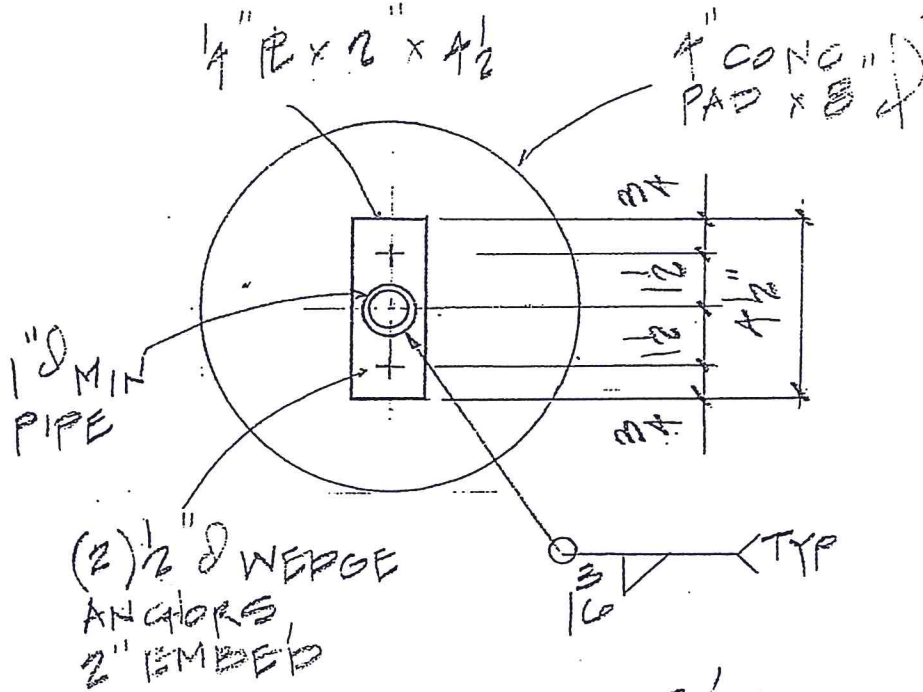 1/4" PL x 2" x 4 1/2
4" CONC
PAD x 8" Ø
3/4
1 1/2
4 1/2"
1 1/2
3/4
1" Ø MIN
PIPE
(2) 1/2" Ø WEDGE
ANCHORS
2" EMBED
3/16
TYP